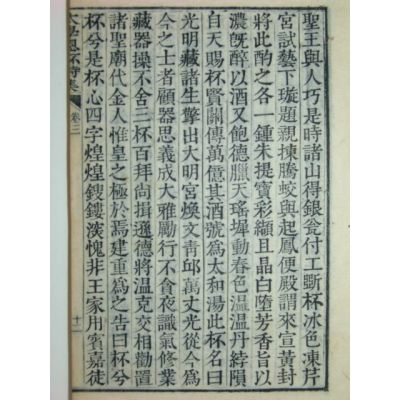 聖王與人巧是時諸山得銀瓮付工斲杯冰色凍芹
宮試藝下璇題親揀騰蛟與起鳳便殿謂來宣黃封
將此酌之各一鍾朱提寶彩纈且晶白墮芳香旨以
濃旣醉以酒又飽德臘天瑤墀動春色溫溫丹綍隕
自天賜杯賢關傳萬億其酒號爲太和湯此杯名曰
光藏諸生擎出大明宮煥文靑邱萬丈光從今爲
今之士者顧器思義成大雅勵行不貪夜識氣修業
藏器操不舍三杯百拜尚揖遜德將溫克交相勸置
諸聖廟代金人惟皇之極於焉建重爲之告曰杯兮
杯兮是杯心四字煌煌鎪鏤渶愧非王家用賓嘉徒
卷三
十二